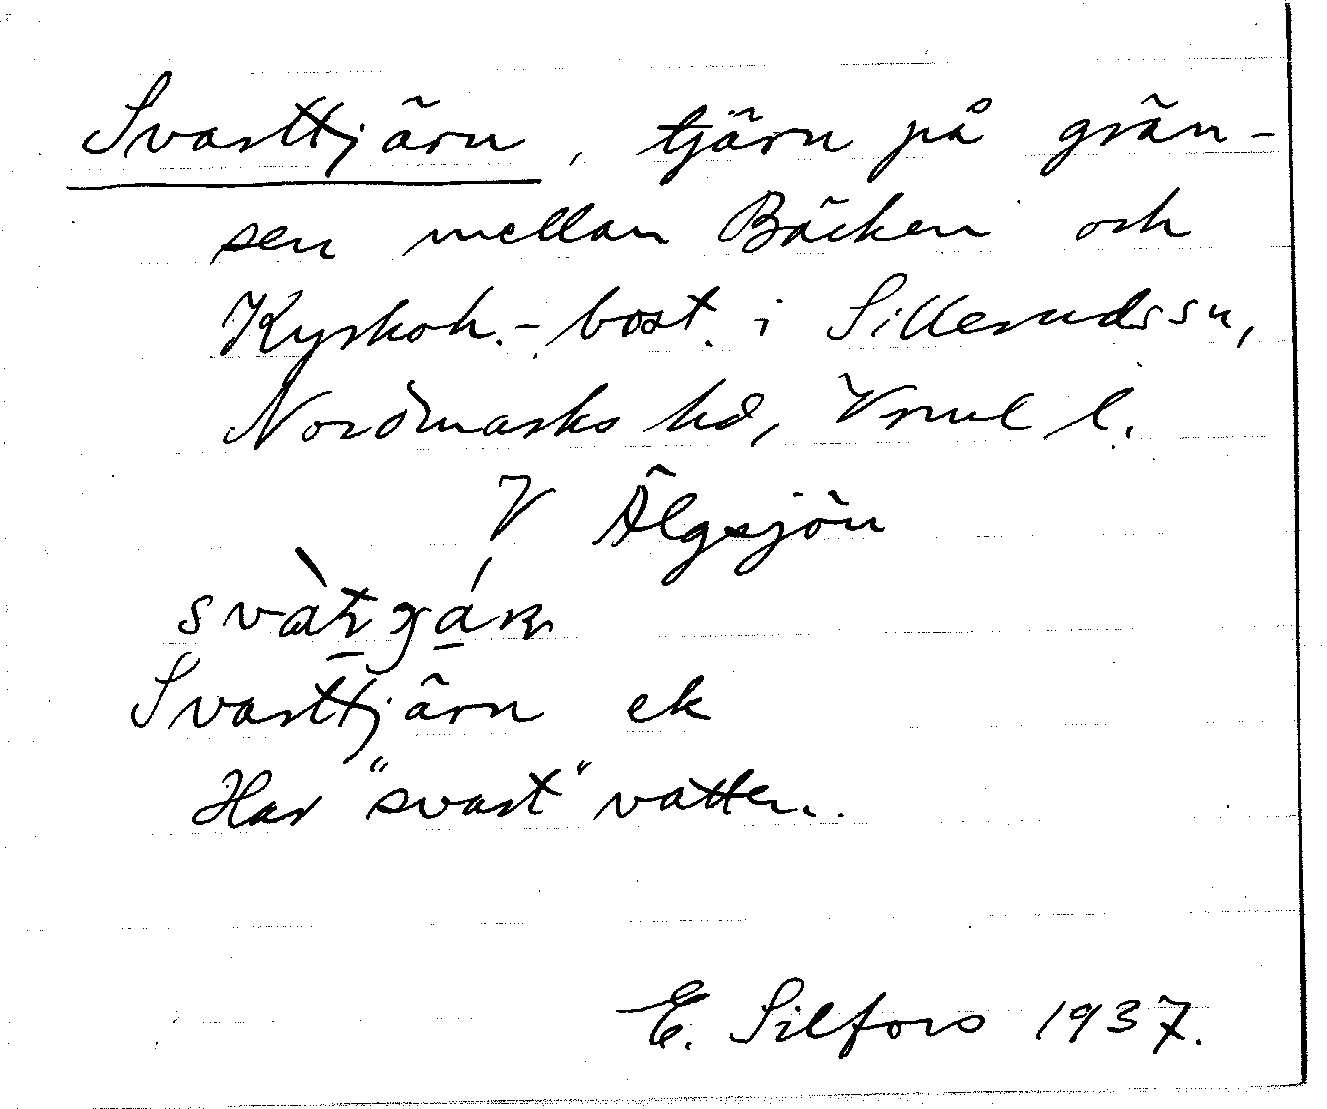 Svarttjärn, tjärn på grän-
sen mellan Bäcken och
Kyrkoh.-bost. i Sillerudssn,
Nordmarks hd, Vrml l.
V Älgsjön
Svarttjärn ek
Har "svart" vatten.
E. Silfors 1937.